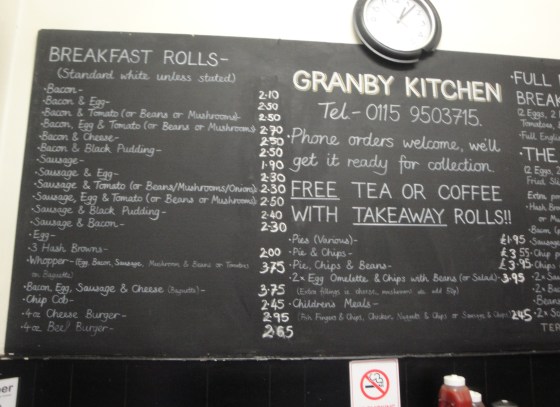 BREAKFAST ROLLS-
(Standard white unless stated)
·Bacon-
·Bacon & Egg- 2·10
·Bacon & Tomato (or Beans or Mushrooms)- 2·50
·Bacon, Egg & Tomato (or Beans or Mushrooms) 2·50
·Bacon & Cheese- 2·70
·Bacon & Black Pudding- 2·50
·Sausage- 2·50
·Sausage & Egg- 1·90
·Sausage & Tomato (or Beans/Mushrooms/Onion) 2·30
·Sausage, Egg & Tomato (or Beans or Mushrooms) 2·30
·Sausage & Black Pudding- 2·50
·Sausage & Bacon- 2·40
·Egg- 2·30
·3 Hash Browns- 2·00
·Whopper- (Egg, Bacon, Sausage, Mushroom & Beans or Tomatoes 3·75
on Baguette)
·Bacon, Egg, Sausage & Cheese (Baguette)- 3·75
·Chip Cob- 2·45
·4oz Cheese Burger- 2·95
·4oz Beef Burger- 2·65
GRANBY KITCHEN
Tel- 0115 9503715.
·Phone orders welcome, we'll
get it ready for collection.
FREE TEA OR COFFEE
WITH TAKEAWAY ROLLS!!
·Pies (Various)- £1·95
·Pie & Chips- £3·55
·Pie, Chips & Beans- £3·95
·2x Egg Omelette & Chips with Beans (or Salad)- 3·95
(Extra fillings ie cheese, mushroom etc add 50p)
·Children's Meals-
(Fish Fingers & Chips, Chicken Nuggets & Chips or Sausage & Chips) 2·45
·FULL
BREAK
(2 Eggs, 2
Tomatoes,
·Full En
·THE
(2 Eggs, 2
Fried, Sl
Extra por
·Hash Bro
or
·Bacon
·Sausage
·Chip p
·Chips
·2x
·2x B
·Beans
·2x So
TE